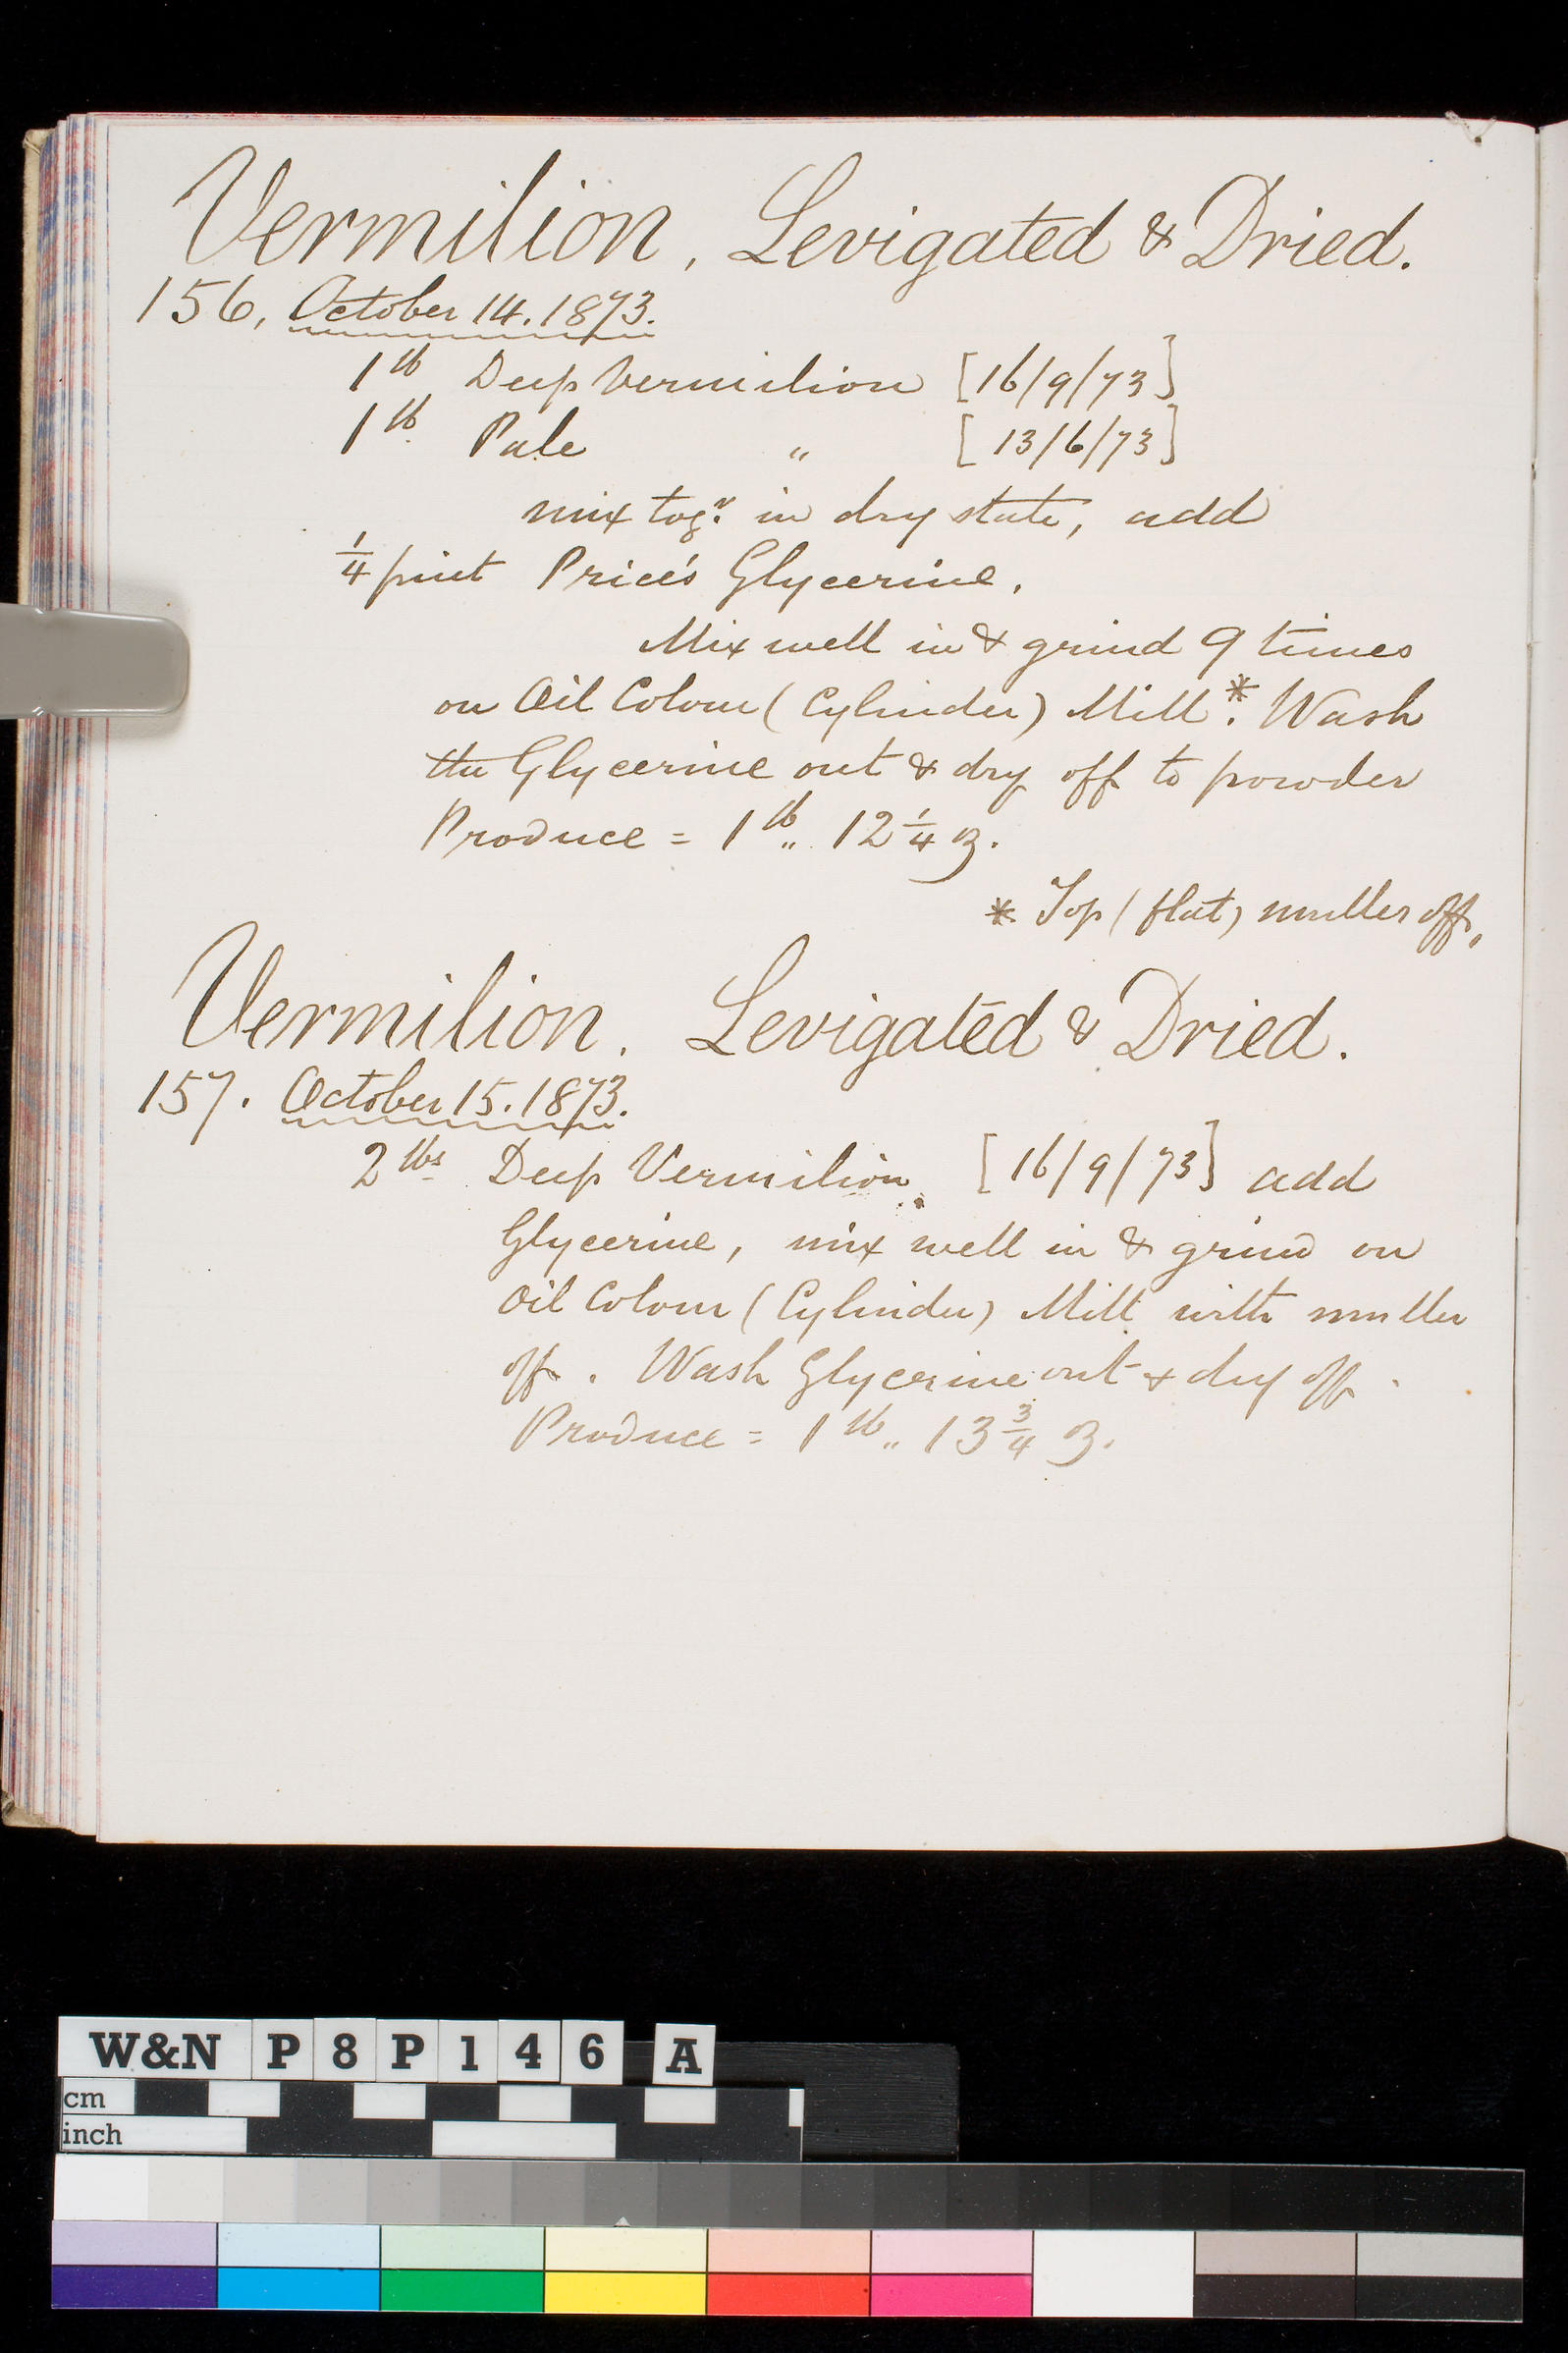 Vermilion, Levigated & Dried.
156, October 14. 1873.
1 lb Deep Vermilion [16/9/73]
1 lb. Pale " [13/6/73]
mix togr. in dry state, add
1/4 pint Price's Glycerine.
Mix well in & grind 9 times
on Oil Colour (Cylinder) Mill*. Wash
the Glycerine out & dry off to powder
Produce = 1 lb „ 12 1/4 oz.
* Top (flat) muller off,
Vermilion. Levigated & Dried.
157. October 15. 1873.
2 lbs Deep Vermilion. [16/9/73] add
Glycerine, mix well in & grind on
Oil Colour (Cylinder) Mill with muller
off. Wash Glycerine out & dry off.
Produce = 1 lb „ 13 3/4 oz.
W&N P8P146 A
cm
inch